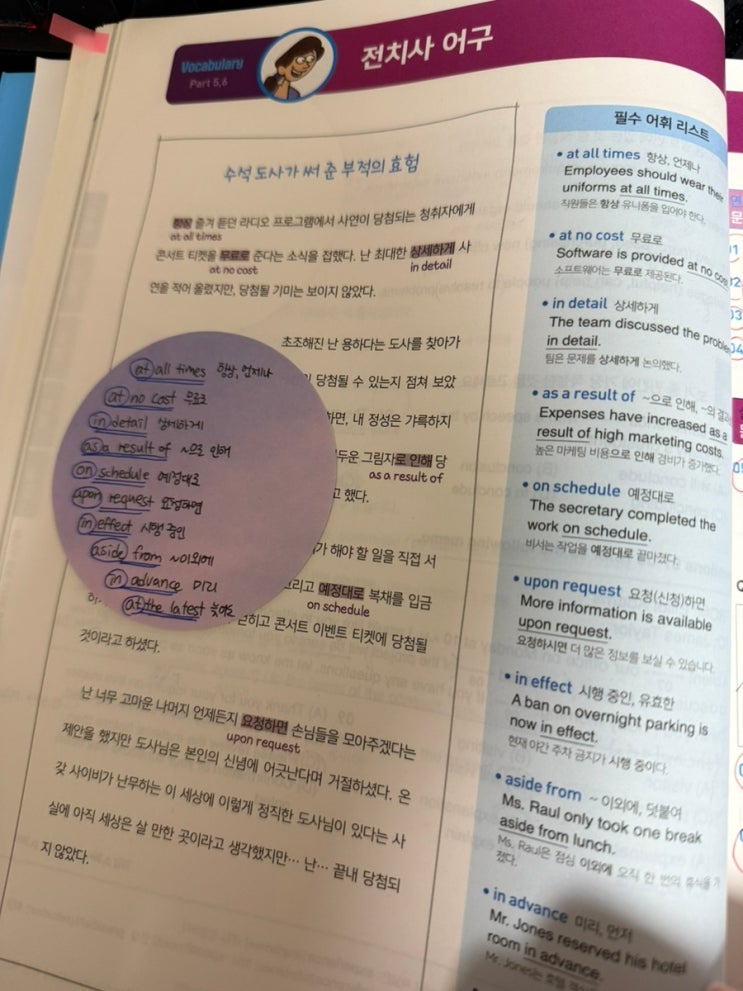 Vocabulary
Part 5,6
전치사 어구
수석 도사가 써 준 부적의 효험
항상 즐겨 듣던 라디오 프로그램에서 사연이 당첨되는 청취자에게
at all times
콘서트 티켓을 무료로 준다는 소식을 접했다. 난 최대한 상세하게 사
at no cost in detail
연을 적어 올렸지만, 당첨될 기미는 보이지 않았다.
초조해진 난 용하다는 도사를 찾아가
당첨될 수 있는지 점쳐 보았
하면, 내 정성은 갸륵하지
두운 그림자로 인해 당
as a result of
고 했다.
가 해야 할 일을 직접 서
그리고 예정대로 복채를 입금
on schedule
콘서트 이벤트 티켓에 당첨될
것이라고 하셨다.
난 너무 고마운 나머지 언제든지 요청하면 손님들을 모아주겠다는
upon request
제안을 했지만 도사님은 본인의 신념에 어긋난다며 거절하셨다. 온
갖 사이비가 난무하는 이 세상에 이렇게 정직한 도사님이 있다는 사
실에 아직 세상은 살 만한 곳이라고 생각했지만… 난… 끝내 당첨되
지 않았다.
at all times 항상, 언제나
at no cost 무료로
in detail 상세하게
as a result of ~으로 인해
on schedule 예정대로
upon request 요청하면
in effect 시행 중인
aside from ~이외에
in advance 미리
at the latest 늦어도
필수 어휘 리스트
• at all times 항상, 언제나
Employees should wear their
uniforms at all times.
직원들은 항상 유니폼을 입어야 한다.
• at no cost 무료로
Software is provided at no cost
소프트웨어는 무료로 제공된다.
• in detail 상세하게
The team discussed the proble
in detail.
팀은 문제를 상세하게 논의했다.
• as a result of ~으로 인해, ~의 결과
Expenses have increased as a
result of high marketing costs.
높은 마케팅 비용으로 인해 경비가 증가했다.
• on schedule 예정대로
The secretary completed the
work on schedule.
비서는 작업을 예정대로 끝마쳤다.
• upon request 요청(신청)하면
More information is available
upon request.
요청하시면 더 많은 정보를 보실 수 있습니다.
• in effect 시행 중인, 유효한
A ban on overnight parking is
now in effect.
현재 야간 주차 금지가 시행 중이다.
• aside from ~ 이외에, 덧붙여
Ms. Raul only took one break
aside from lunch.
Ms. Raul은 점심 이외에 오직 한 번의 휴식을 가
졌다.
• in advance 미리, 먼저
Mr. Jones reserved his hotel
room in advance.
Mr. Jones는 호텔